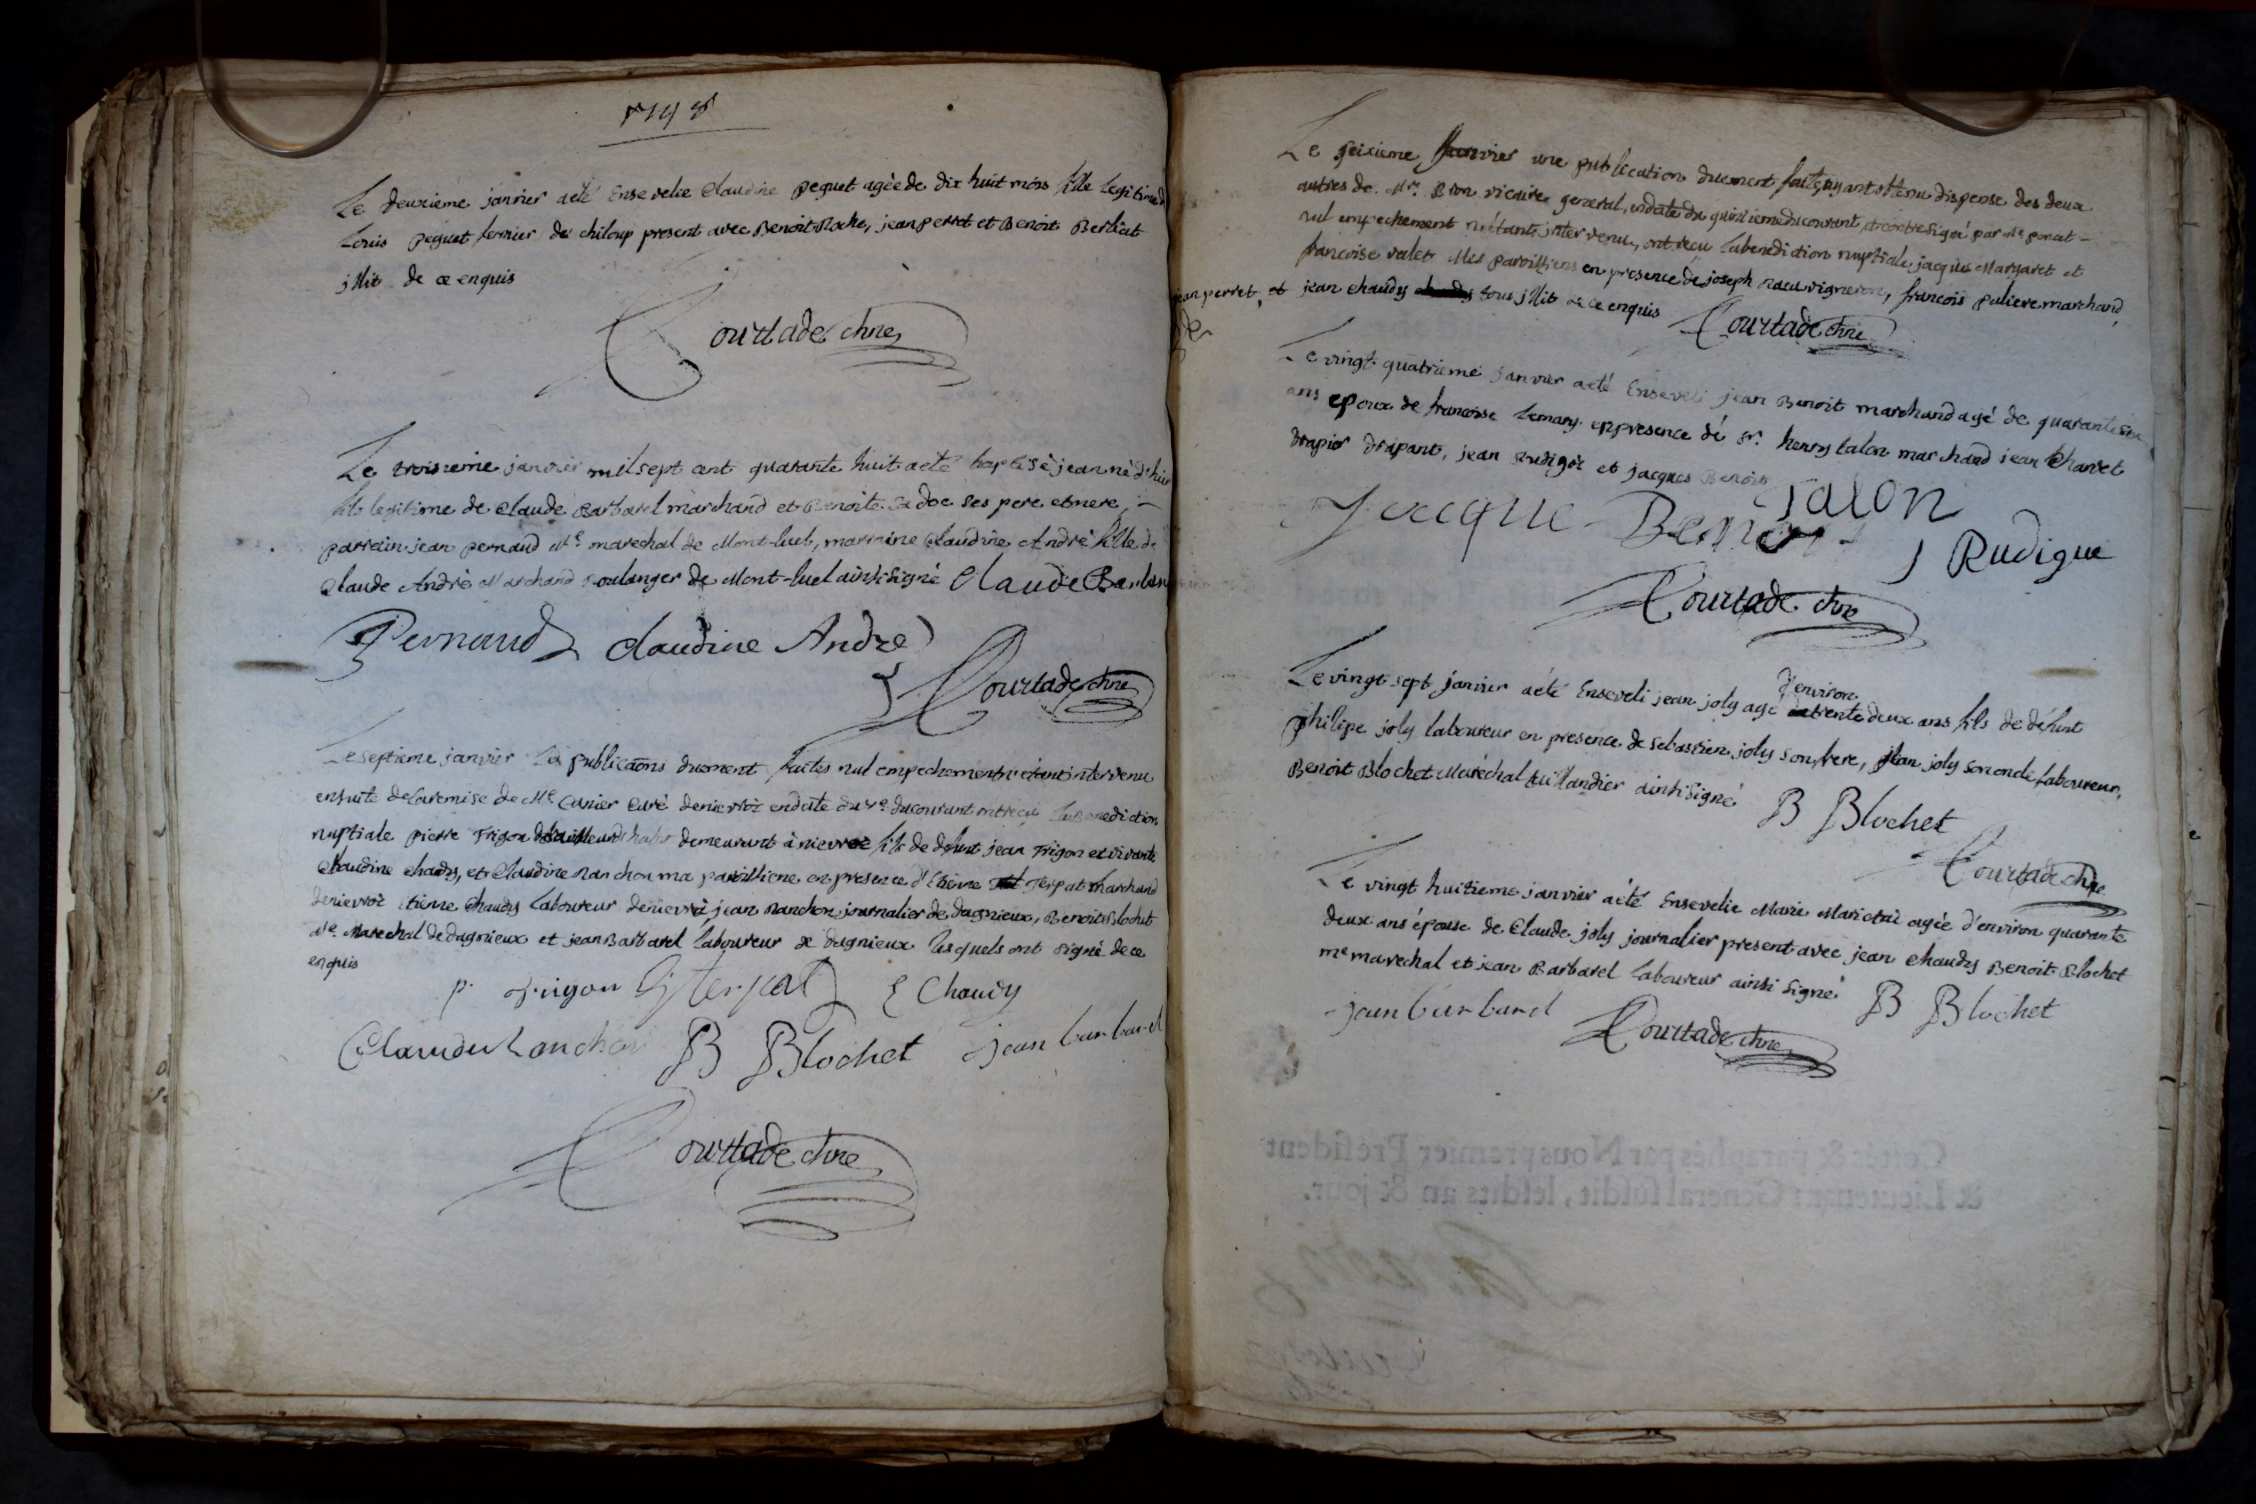 1748
Le deuxieme janvier a eté Ensevelie Claudine peguet agèe de dix huit mois fille legitime de
Louis peguet fermier de chiloup present avec Benoit Roche, jean perret et Benoit Berliat
jllit. de ce enquis
Courtade chne
Le troisieme janvier mil sept cent quarante huit a eté baptisé jean né d'hier
fils legitime de Claude Barbarel marchand et Benoite Sadoc ses pere et mere,
parrain jean pernaud Me marechal de Mont-luel, marraine Claudine Andrè fille de
Claude Andrè Marchand Boulanger de Mont-luel ainsi signé Claude Barbarel
Pernaud Claudine Andre
Courtade chne
Le septieme janvier Les publicãons duement faites nul empechement n'etant intervenu
ensuite de la remise de Me Cunier Curé de nievroz en date du 4e du courant ont reçu la Benediction
nuptiale pierre Frigon demeurant à nievroz fils de defunt jean Frigon et vivante
Claudine chaudy, et Claudine Ranchon ma paroissiene en presence d'Etiene Terpat Marchand
de nievroz etienne Chaudy Laboureur de nievroz jean Ranchon journalier de dagnieux, Benoit Blochet
Me Marechal de dagnieux et jean Barbarel laboureur de dagnieux lesquels ont signé de ce
enquis
p. frigon terpat E Chaudy
Claude Ranchon B Blochet jean barbarel
Courtade chne
Le seizieme janvier une publication duement faite, ayant obtenu dispense des deux
autres de Mr. Bron vicaire general, en date du quinzieme du courant, et contresigné par Me ponat -
nul empechement n'etant intervenu, ont reçu la benediction nuptiale jacques Margaret et
francoise valet Mes paroissiens en presence de joseph vigneron, francois puliere marchand,
jean perret, et jean chaudy tous jllit. de ce enquis Courtade chne
Le vingt quatrieme janvier a eté Enseveli jean Benoit marchand agé de quarante
ans epoux de francoise Lemary en presence de Sr. henry talon marchand jean Charvet
drapier drapant, jean Rudigoz et jacques Benoit
Jacque Benoit Talon
J Rudigue
Courtade chne
d'environ
Le vingt sept janvier a eté Enseveli jean joly agé trente deux ans fils de defunt
philipe joly laboureur en presence de sebastien joly son frere, jean joly son oncle laboureur,
Benoit Blochet Maréchal taillandier ainsi signé B Blochet
Courtade chne
Le vingt huitieme janvier a eté Ensevelie Marie agée d'environ quarante
deux ans épouse de Claude joly journalier present avec jean chaudy Benoit Blochet
me marechal et jean Barbarel laboureur ainsi signé B Blochet
jean barbarel Courtade chne